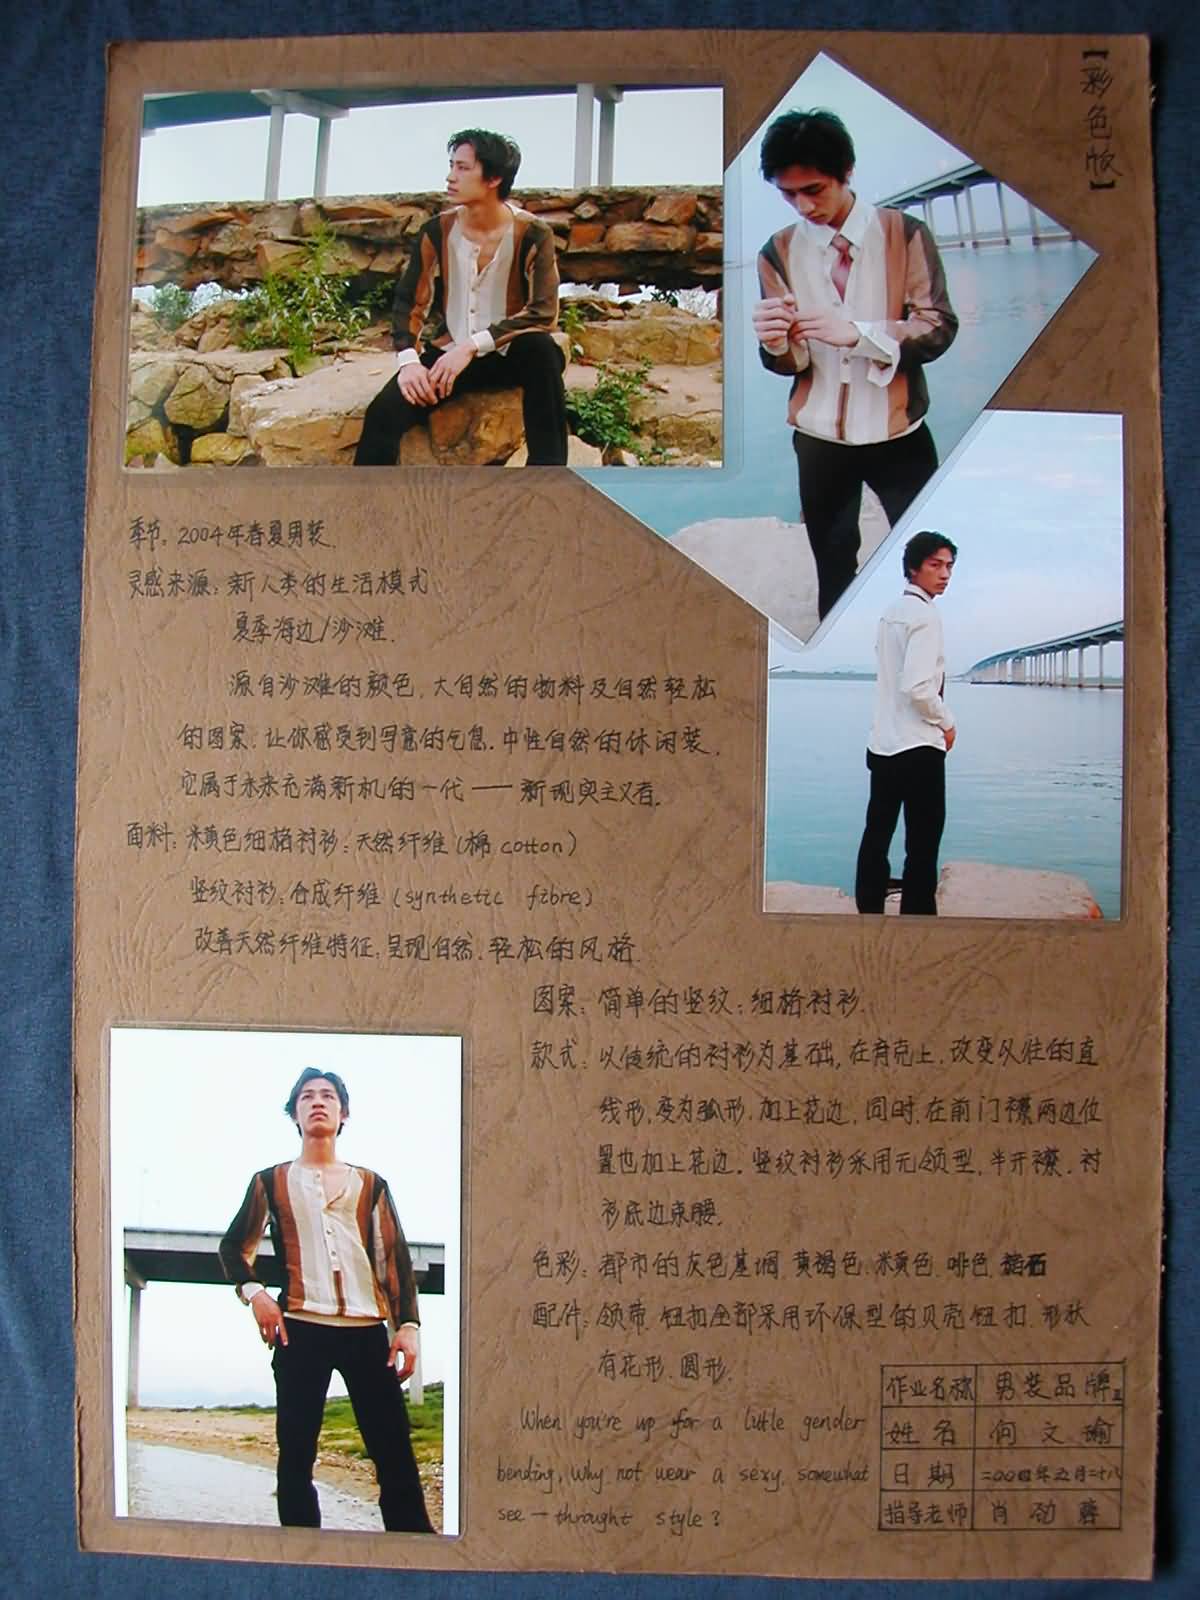 【彩色版】
季节：2004年春夏男装．
灵感来源：新人类的生活模式
夏季海边/沙滩．
源自沙滩的颜色．大自然的物料及自然轻松
的图案．让你感受到写意的气息．中性自然的休闲装．
它属于未来充满新机的一代——新现实主义者．
面料：米黄色细格衬衫：天然纤维（棉 cotton）
竖纹衬衫：合成纤维（synthetic fibre）
改善天然纤维特征：呈现自然．轻松的风格．
图案：简单的竖纹；细格衬衫．
款式：以传统的衬衫为基础，在育克上，改变以往的直
线形，变为弧形．加上花边，同时，在前门襟两边位
置也加上花边．竖纹衬衫采用无领型．半开襟．衬
衫底边束腰．
色彩：都市的灰色基调．黄褐色．米黄色．啡色．赭石
配件：领带．钮扣全部采用环保型的贝壳钮扣．形状
有花形．圆形．
When you're up for a little gender
bending, why not wear a sexy, somewhat
see-throught style?
作业名称 男装品牌
姓名 何文瑜
日期 二00四年五月二十八
指导老师 肖劲蓉